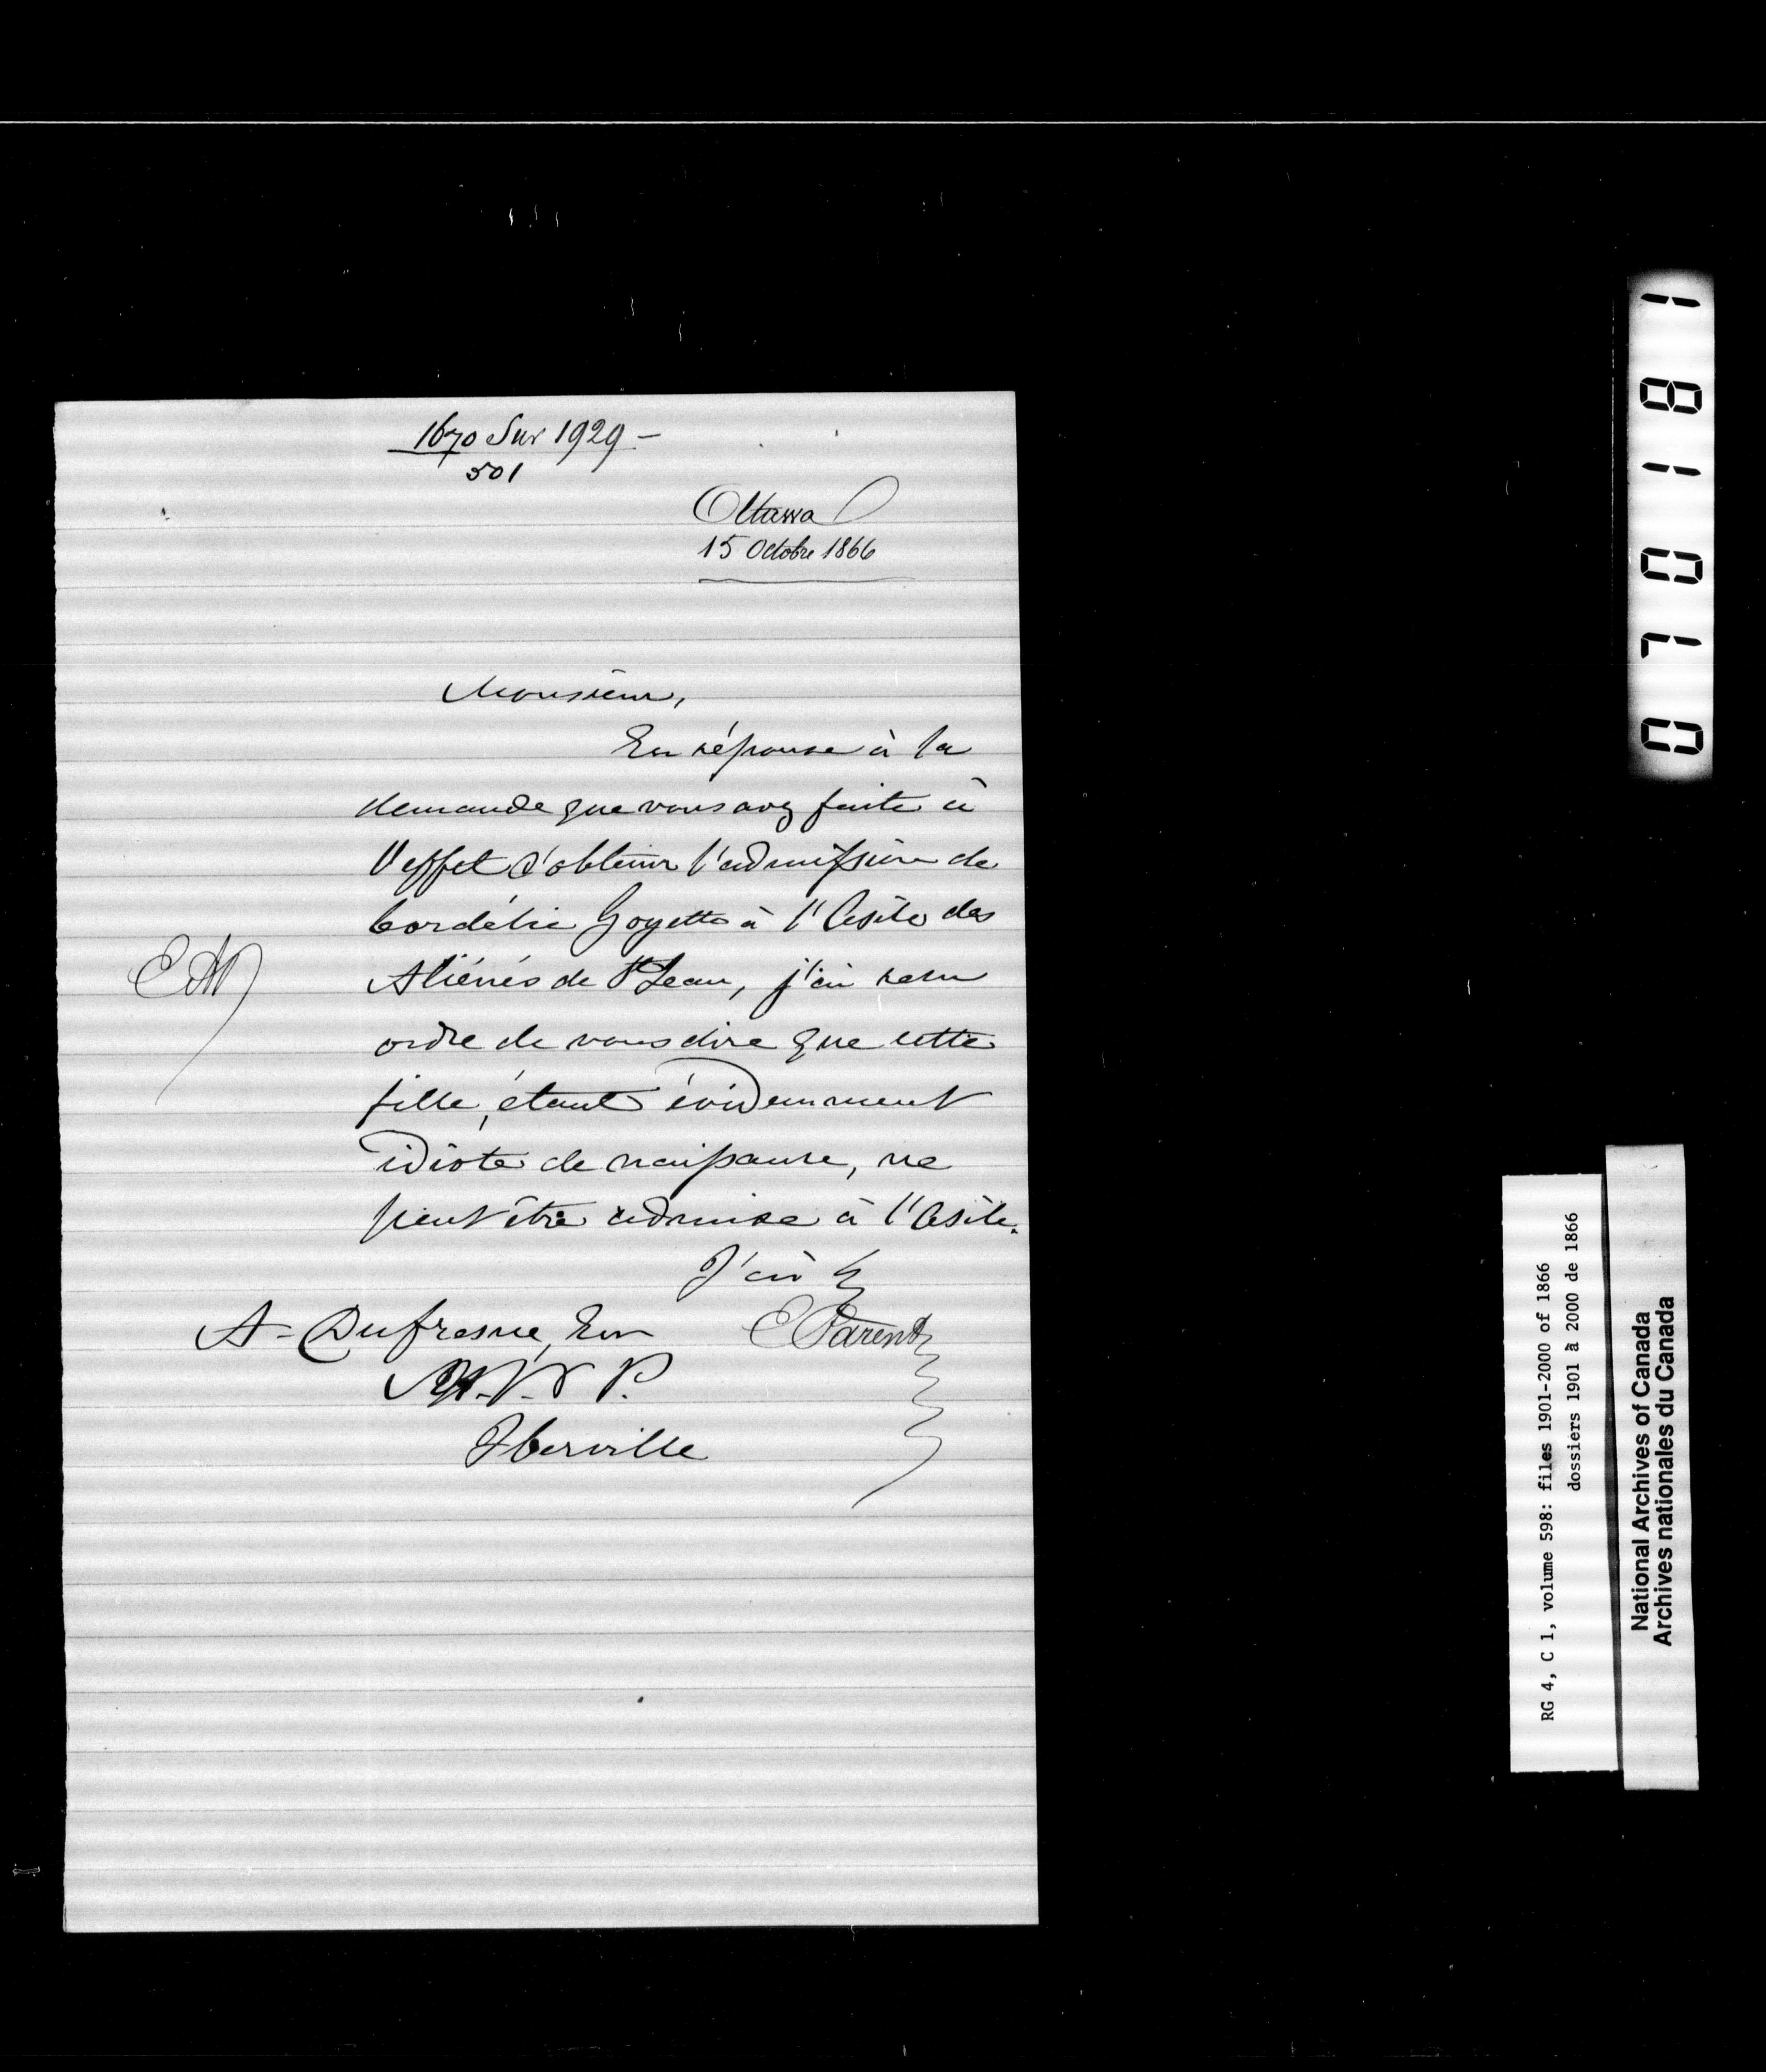 1670 Sur 1929 -
501
Ottawa
15 Octobre 1866
Monsieur,
En réponse à la
demande que vous avez faite à
l'effet d'obtenir l'admission de
Cordélie Goyette à l'Asile des
Aliénés de St Jean, j'ai reçu
ordre de vous dire que cette
fille, étant évidemment
idiote de naissance, ne
peut être admise à l'Asile.
J'ai &
E Parent
A - Dufresne, Eur
M.P.P.
Iberville
018107
RG 4, C 1, volume 598: files 1901-2000 of 1866
dossiers 1901 à 2000 de 1866
National Archives of Canada
Archives nationales du Canada